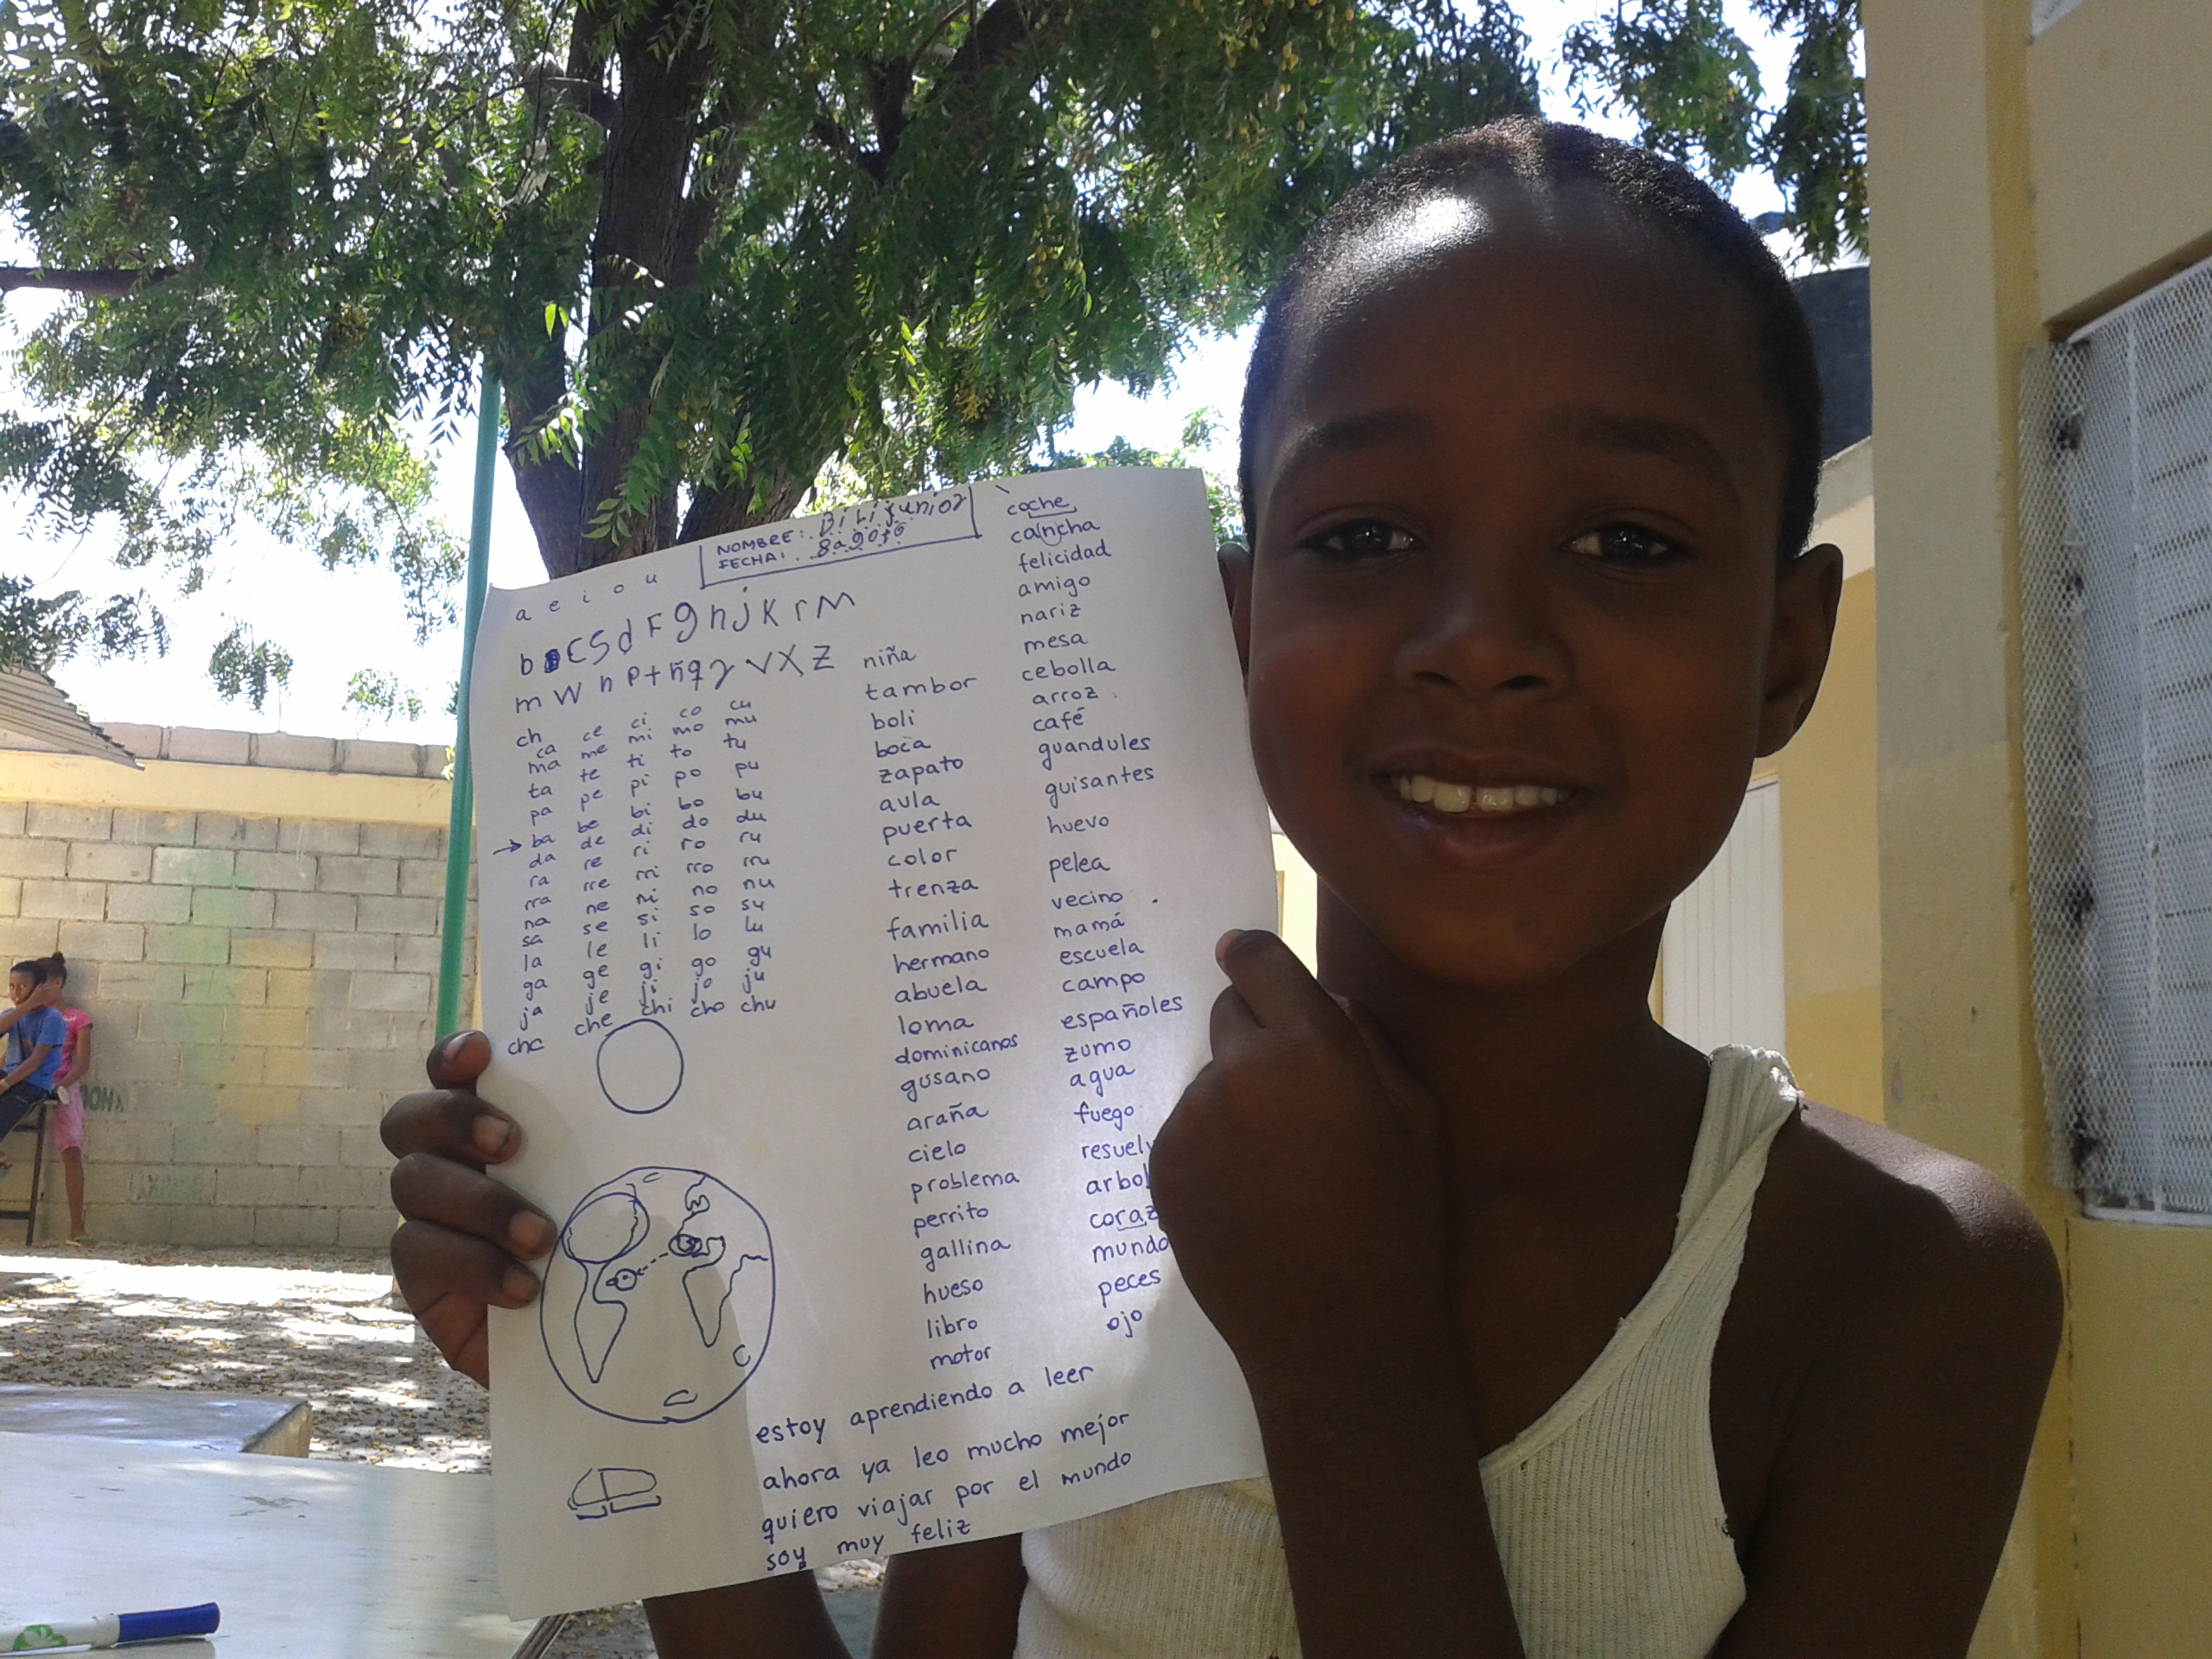 NOMBRE: BiLi junior
FECHA: 8 agosto
a e i o u
b c s d F g h j K r M
m W n P t ñ q y V X Z
ch
ca ce ci co cu
ma me mi mo mu
ta te ti to tu
pa pe pi po pu
ba be bi bo bu
da de di do du
ra re ri ro ru
rra rre rri rro rru
na ne ni no nu
sa se si so su
la le li lo lu
ga ge gi go gu
ja je ji jo ju
cha che chi cho chu
niña
tambor
boli
boca
zapato
aula
puerta
color
trenza
familia
hermano
abuela
loma
dominicanos
gusano
araña
cielo
problema
perrito
gallina
hueso
libro
motor
coche
cancha
felicidad
amigo
nariz
mesa
cebolla
arroz
café
guandules
guisantes
huevo
pelea
vecino
mamá
escuela
campo
españoles
zumo
agua
fuego
resuelv
arbol
coraz
mundo
peces
ojo
estoy aprendiendo a leer
ahora ya leo mucho mejor
quiero viajar por el mundo
soy muy feliz